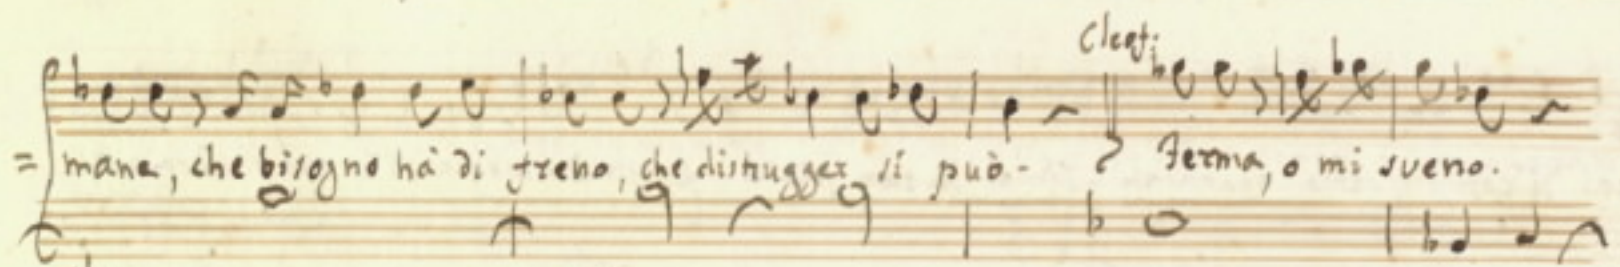 Cleof:
= mane, che bisogno hà di freno, che distrugger si può - Ferma, o mi sveno.